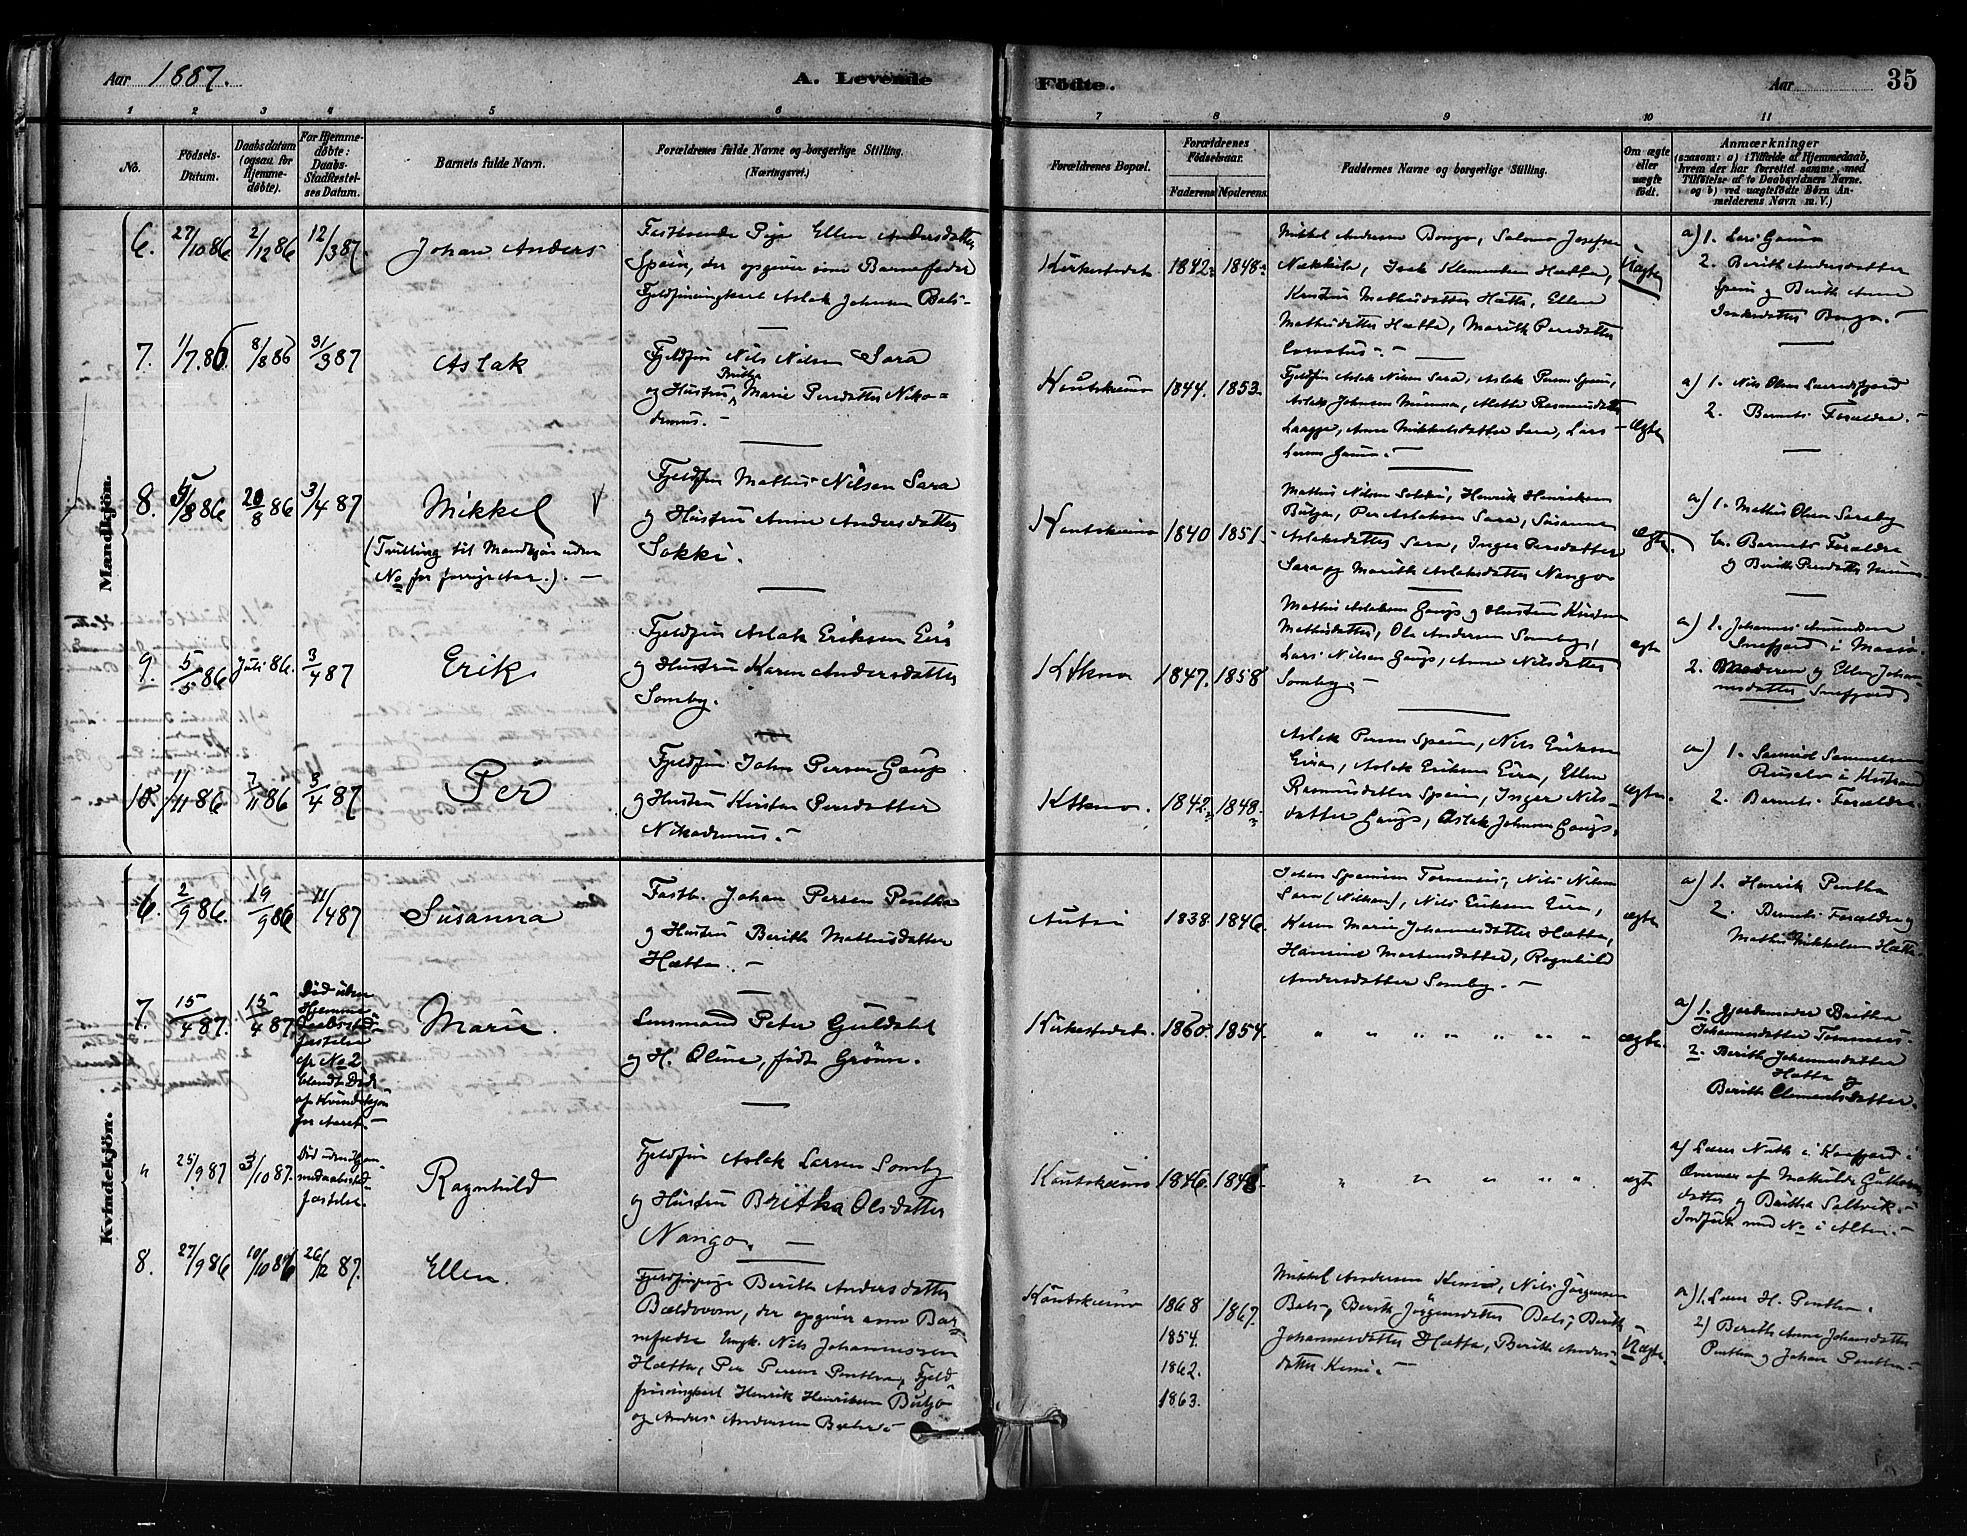 Aar 1887.
A. Levende
Födte.
Aar
35
1 2 3 4 5 6 7 8 9 10 11
No.
Födsels-Datum.
Daabsdatum (ogsaa for Hjemme-døbte).
For Hjemme-døbte: Daabs-Stadfæstelses Datum.
Barnets fulde Navn.
Forældrenes fulde Navne og borgerlige Stilling. (Næringsvei.)
Forældrenes Bopæl.
Forældrenes Födselsaar.
Faderens Moderens.
Faddernes Navne og borgerlige Stilling.
Om ægte eller uægte födt.
Anmærkninger
(saasom: a) i Tilfælde af Hjemmedaab, hvem der har forrettet samme, med Tilføielse af to Daabsvidners Navne, og b) ved uægtefödte Börn Anmelderens Navn m. V.)
Mandkjön.
6. 27/10 86 2/12 86 12/3 87. Johan Anders
Fastboende Pige Ellen Andersdatter
Spein, der opgiver som Barnefader
Fjeldfinungkarl Aslak Johnsen Bals-
Kirkestedet 1842 1848
Mikkel Andersen Bongo, Salomo Josefsen
Nækkila, Isak Klemmetsen Hætta,
Kristine Mathisdatter Hætta, Ellen
Mathisdatter Hætta, Marith Persdatter
Uægte
a) 1. Lars Gaino
2. Berith Andersdatter
Spein og Berith Anne
Isaksdatter Bongo.
7. 1/7 86. 8/8 86 31/3 87 Aslak
Fjeldfin Nils Nilsen Sara
og Hustru Britha Marie Persdatter Niko=
demus.
Kautokeino 1844. 1853.
Fjeldfin Aslak Nilsen Sara, Aslak Persen Spein,
Aslak Johnsen Mienna, Alette Rasmusdatter
Laagje, Anne Mikkelsdatter Sara, Lars
Larsen Gaino.
Ægte
a) 1. Nils Olsen Laerredsfjord
2. Barnets Forældre.
8. 5/8 86 20/8 86 3/4 87 Mikkel V
(Tvilling til Mandkjön uden
No for forrige Aar.).
Fjeldfin Mathis Nilsen Sara
og Hustru Anne Andersdatter
Sokki.
Kautokeino 1840 1851.
Mathis Nilsen Sokki, Henrik Henriksen
Buljo, Per Aslaksen Sara, Susanne
Aslaksdatter Sara, Inger Persdatter
Sara og Marith Aslaksdatter Nango
Ægte.
a) 1. Mathis Olsen Saraby
b. Barnets Forældre
og Berith Persdatter
9. 5/5 86 Juli 86. 3/4 87 Erik
Fjeldfin Aslak Eriksen Eira
og Hustru Karen Andersdatter
Somby.
Ktkno 1847. 1858
Mathis Aslaksen Gaup og Hustru Kirsten
Mathisdatter, Ole Andersen Somby,
Lars Nilsen Gaup, Anne Nilsdatter
Somby.
ægte
a) 1. Johannes Amundsen
Snefjord i Maasö.
2. Moderen og Ellen Johan-
nesdatter Snefjord
10. 1/11 86 7/11 86 3/4 87 Per
Fjeldfin John Persen Gaup
og Hustru Kirsten Persdatter
Nikodemus.
Ktkno. 1842. 1848.
Aslak Persen Spein, Nils Eriksen
Eira, Aslak Eriksen Eira, Ellen
Rasmusdatter Spein, Inger Nils-
datter Gaup, Aslak Johnsen Gaup.
ægte.
a) 1. Samuel Samuelsen
i Kistrand
2. Barnets Forældre.
Kvindekjön.
6. 2/9 86. 19/9 86 11/4 87 Susanna
Fastb. Johan Persen Pentha
og Hustru Berith Mathisdatter
Hætta.
Autsi 1838. 1846.
Johan Spanium Tornensis, Nils Nilsen
Sara (Nilsen), Nils Eriksen Eira,
Karen Marie Johannesdatter Hætta,
Hansine Mortensdatter, Ragnhild
Andersdatter Somby.
ægte
a) 1. Henrik Pentha
2. Barnets Forældre og
Mathis Mikkelsen Hætta
7. 15/4 87. 15/4 87
Död uden
Hjemme
daabsstad-
fæstelse
cfr No 2
blandt Döde
af Kvindekjön
for Aaret.
Marie.
Lensmand Peter Guldahl
og H. Oline, født Grönne.
Kirkestedet. 1860. 1854.
" " " " " " "
ægte.
a) 1. Gjordemoder Britha
Johannesdatter Tornensis.
2. Berith Johannesdatter
Hætta og
Berith Clemensdatter.
" 25/9 87 3/10 87.
Död uden Hjem-
medaabsstad-
fæstelse.
Ragnhild
Fjeldfin Aslak Larsen Somby
og Hustru Britha Olsdatter
Nango.
Kautokeino 1846. 1848.
" " " " "
ægte
a) Lærer Nuth i Kaafjord i
Overvær af Mathilde
datter og Britha Saltvik.
Indført med No i Alten.
8. 27/9 86 10/10 86 26/12 87. Ellen.
Fjeldfinpige Berith Andersdatter
Bældvoom, der opgiver som Bar-
nefædre Ungk. Nils Johannessen
Hætta, Per Persen Pentha, Fjeld
finungkarl Henrik Henriksen Buljo
og Anders Andersen Bæhr
Kautokeino 1868 1867.
1854.
1862.
1863.
Mikkel Andersen Kemi, Nils Jörgensen
Bals, Berith Jörgensdatter Bals, Berith
Johannesdatter Hætta, Berith Anders-
datter Kemi.
Uægte.
a) 1. Lærer H. Pentha.
2) Berith Anne Johansdatter
Pentha og Johan Pentha